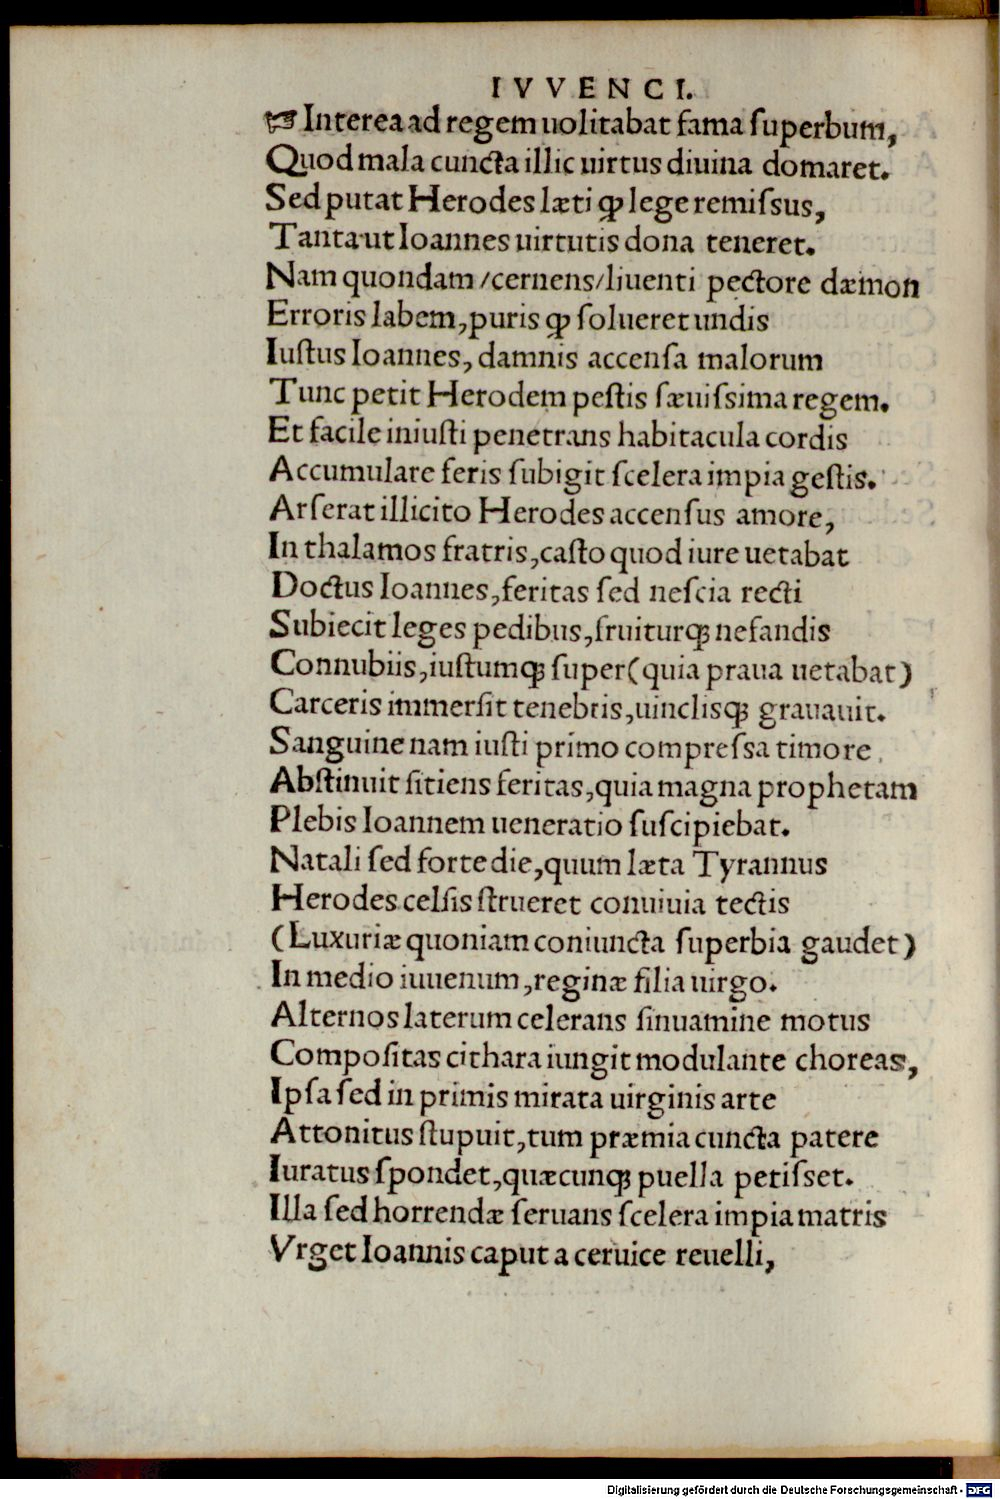 IVVENCI.
☞ Interea ad regem uolitabat fama superbum,
Quod mala cuncta illic uirtus diuina domaret.
Sed putat Herodes læti ꝙ lege remissus,
Tanta ut Ioannes uirtutis dona teneret.
Nam quondam /cernens/ liuenti pectore dæmon
Erroris labem, puris ꝙ solueret undis
Iustus Ioannes, damnis accensa malorum
Tunc petit Herodem pestis sæuissima regem.
Et facile iniusti penetrans habitacula cordis
Accumulare feris subigit scelera impia gestis.
Arserat illicito Herodes accensus amore,
In thalamos fratris, casto quod iure uetabat
Doctus Ioannes, feritas sed nescia recti
Subiecit leges pedibus, fruiturq; nefandis
Connubiis, iustumq; super (quia praua uetabat)
Carceris immersit tenebris, uinclisq; grauauit.
Sanguine nam iusti primo compressa timore
Abstinuit sitiens feritas, quia magna prophetam
Plebis Ioannem ueneratio suscipiebat.
Natali sed forte die, quum læta Tyrannus
Herodes celsis strueret conuiuia tectis
(Luxuriæ quoniam coniuncta superbia gaudet)
In medio iuuenum, reginæ filia uirgo.
Alternos laterum celerans sinuamine motus
Compositas cithara iungit modulante choreas,
Ipsa sed in primis mirata uirginis arte
Attonitus stupuit, tum præmia cuncta patere
Iuratus spondet, quæcunq; puella petisset.
Illa sed horrendæ seruans scelera impia matris
Vrget Ioannis caput a ceruice reuelli,
Digitalisierung gefördert durch die Deutsche Forschungsgemeinschaft - DFG